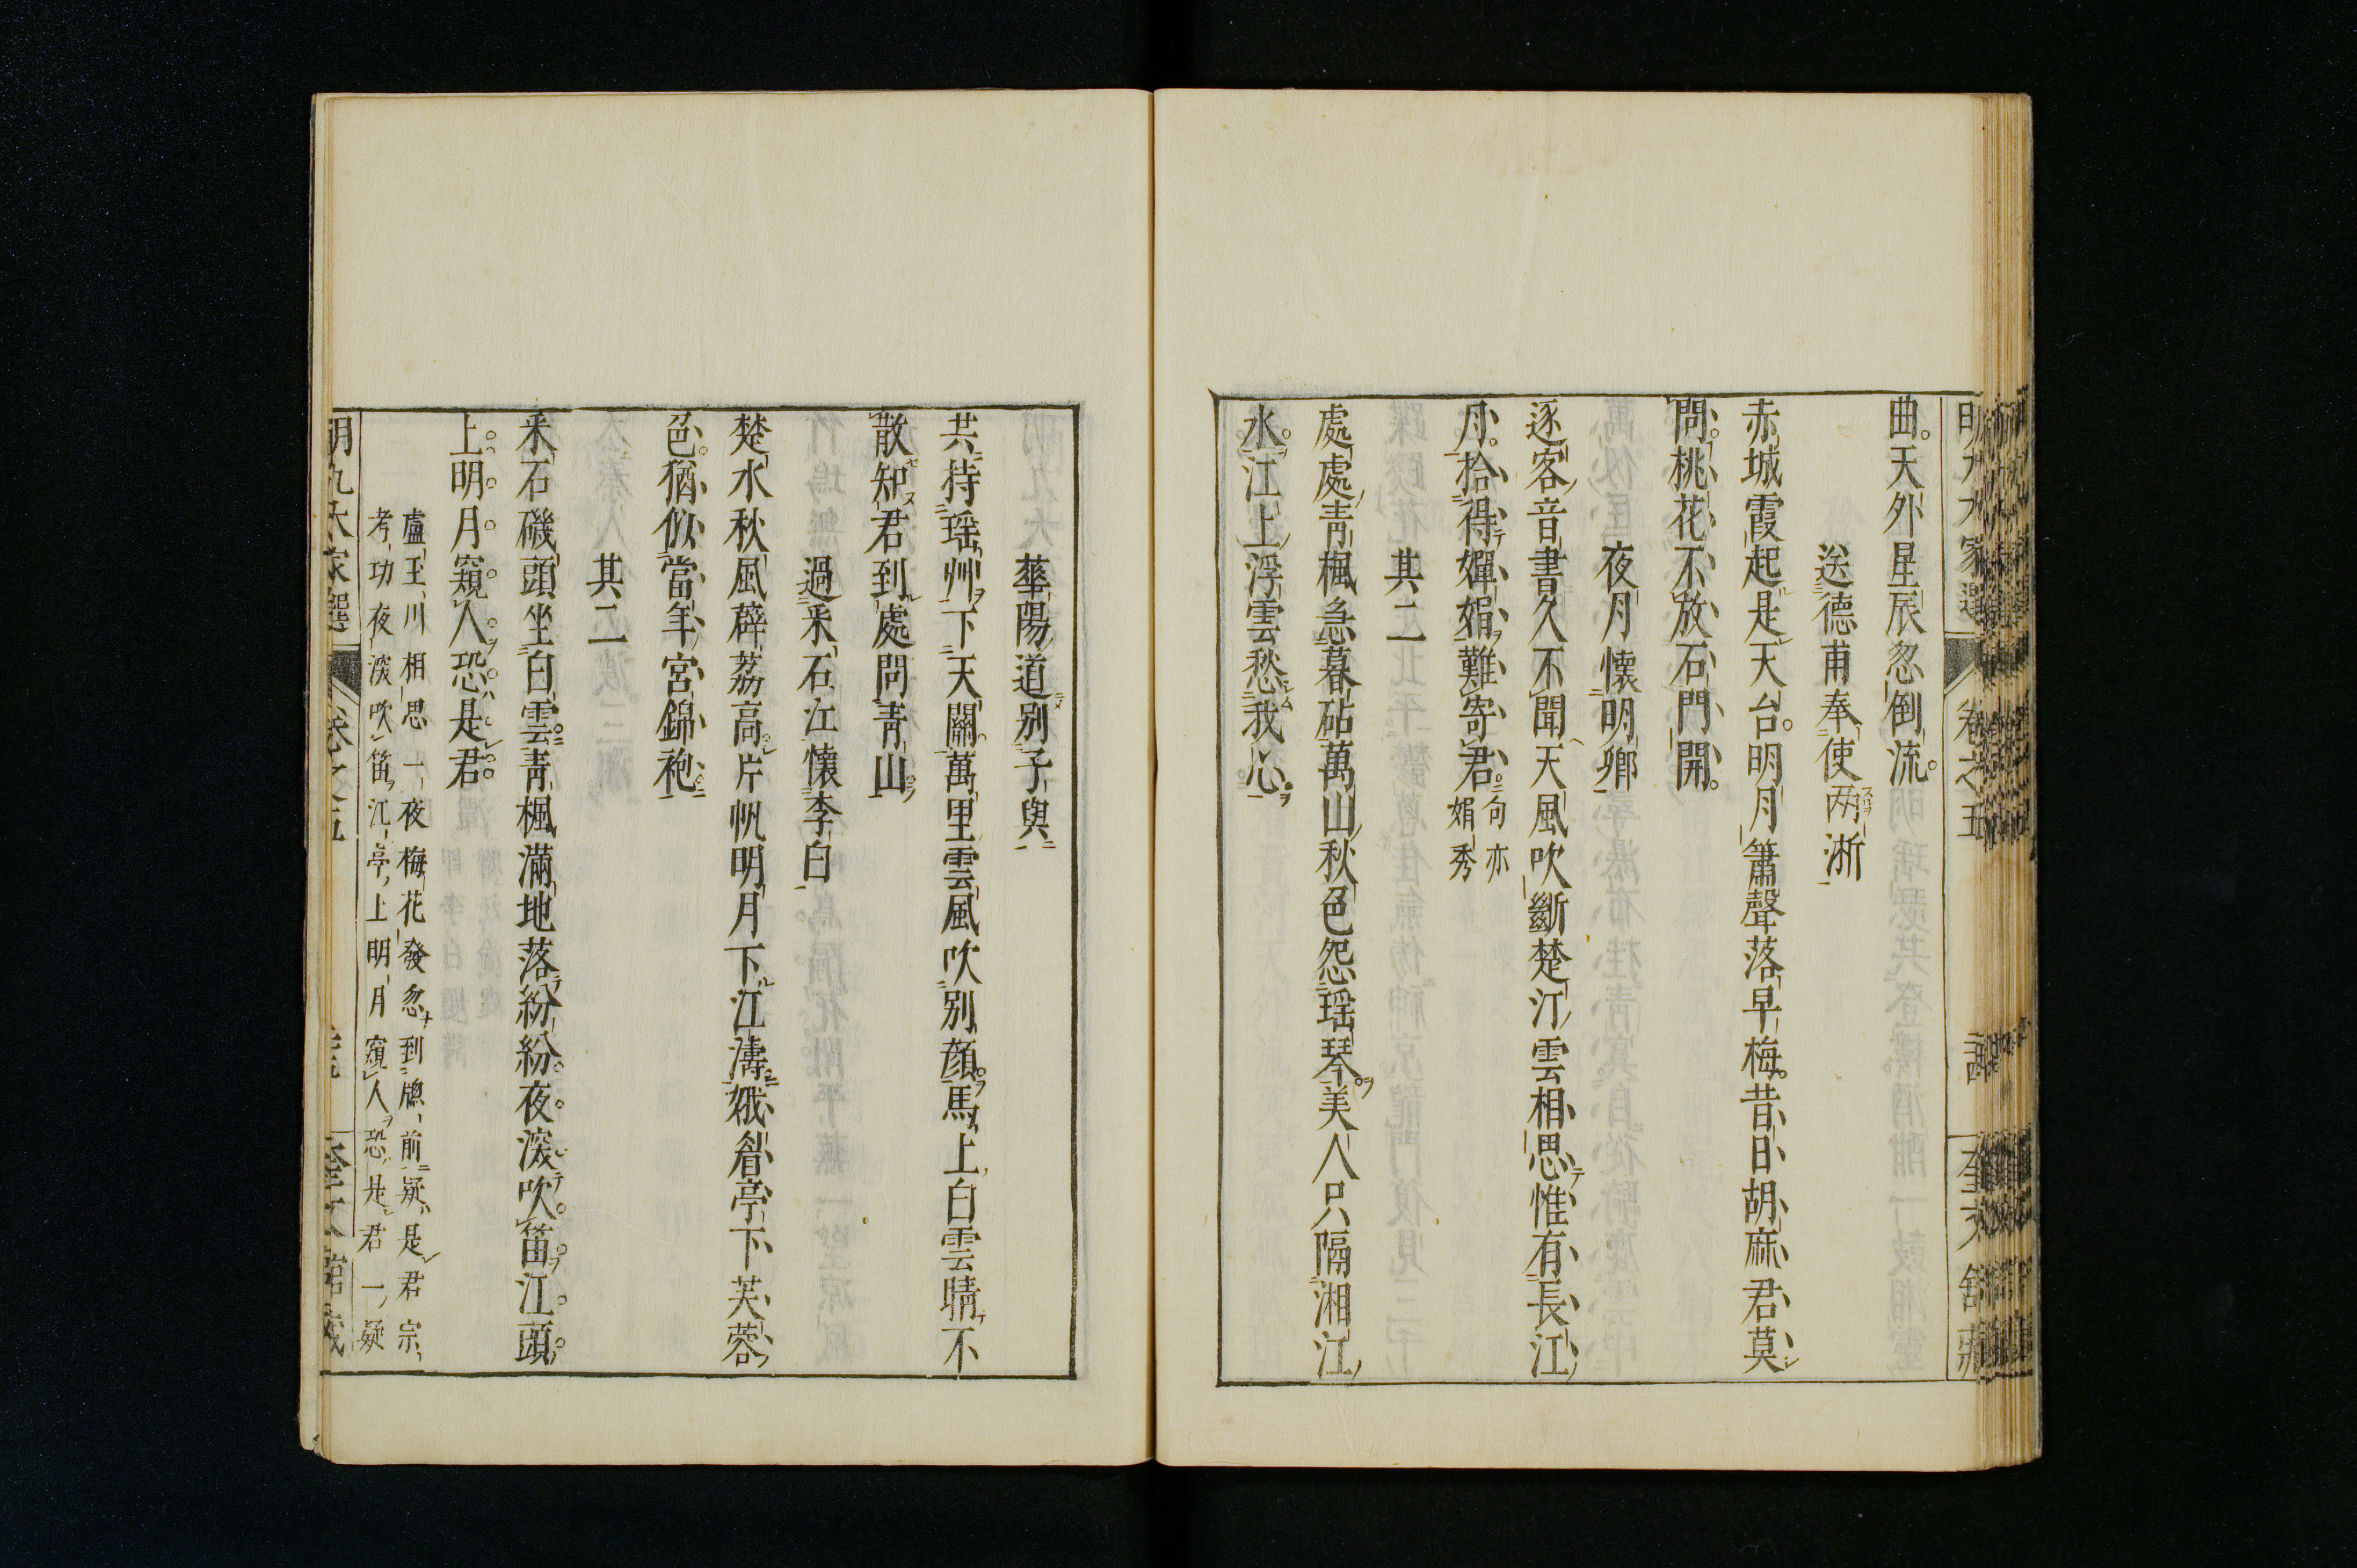 曲天外星辰忽倒流
送德甫奉使両浙
赤城霞起是天台明月簫聲落早梅昔日胡麻君莫
問桃花不放石門開
夜月懷明卿
逐客音書久不聞天風吹斷楚汀雲相思惟有長江
月拾得嬋娟難寄君
句亦
娟秀
其二
處處青楓急暮砧萬山秋色怨瑶琴美人只隔湘江
水江上浮雲愁我心
華陽道別子與
共持瑶艸下天關萬里雲風吹別顔馬上白雲晴不
散知君到處問青山
過采石江懷李白
楚水秋風薜荔高片帆明月下江濤蛾眉亭下芙蓉
色猶似當年宮錦袍
其二
采石磯頭坐白雲青楓滿地落紛紛夜深吹笛江頭
上明月窺人恐是君
盧玉川相思一夜梅花發忽到牕前疑是君宗
考功夜深吹笛江亭上明月窺人恐是君一疑
明九大家選
卷之五
奎文館藏